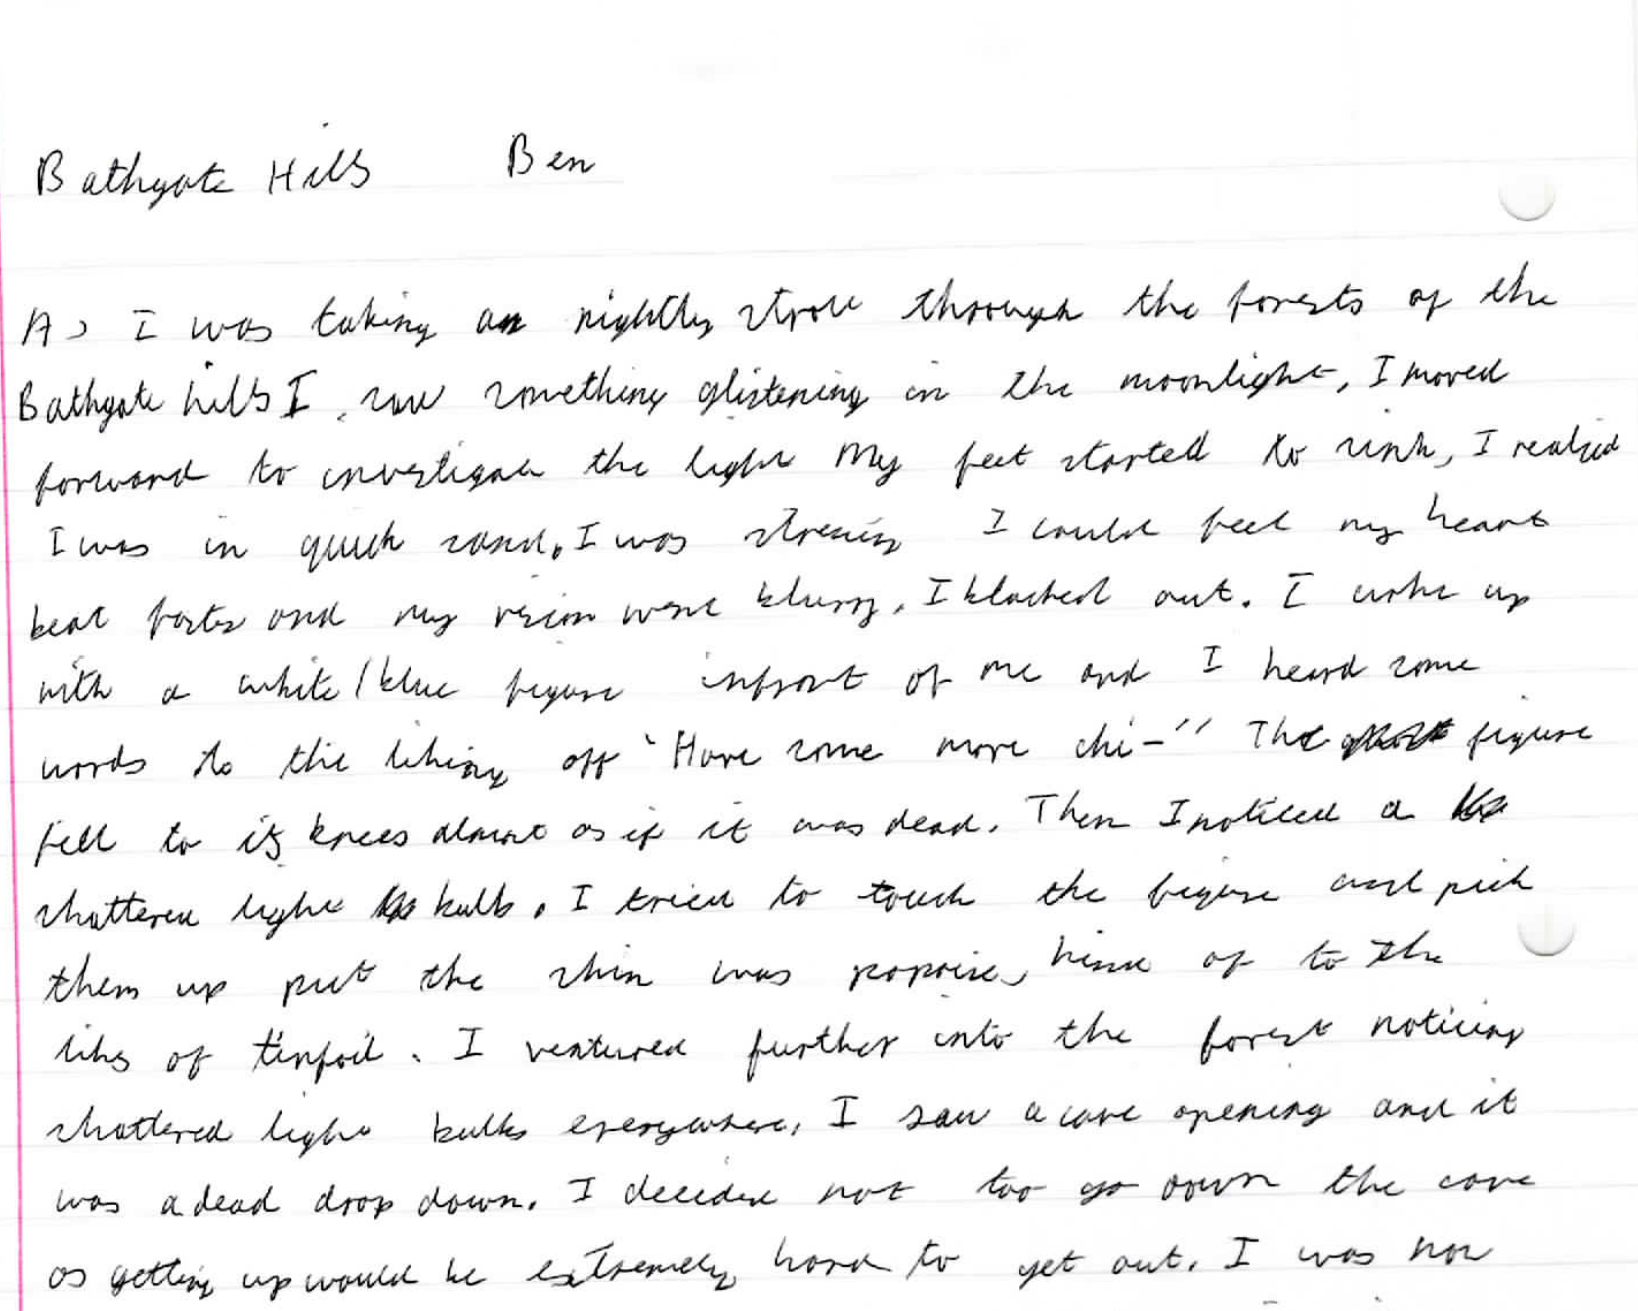 Bathgate Hills Ben
As I was taking an nightly strole through the forests of the
Bathgate hills I saw something glistening in the moonlight, I moved
forward to investigate the light My feet started to sink, I realised
I was in quick sand, I was stressing I could feel my heart
beat faster and my vision went blurry, I blacked out. I woke up
with a white/blue figure infront of me and I heard some
words to the liking off "Have some more chi-" The figure
fell to its knees almost as if it was dead. Then I noticed a
shattered light bulb, I tried to touch the figure and pick
them up put the skin was kind of to the
likes of tinfoil. I ventured further into the forest noticing
shattered light bulbs everywhere, I saw a cave opening and it
was a dead drop down. I decided not too go down the cave
as getting up would be extremely hard to get out. I was now